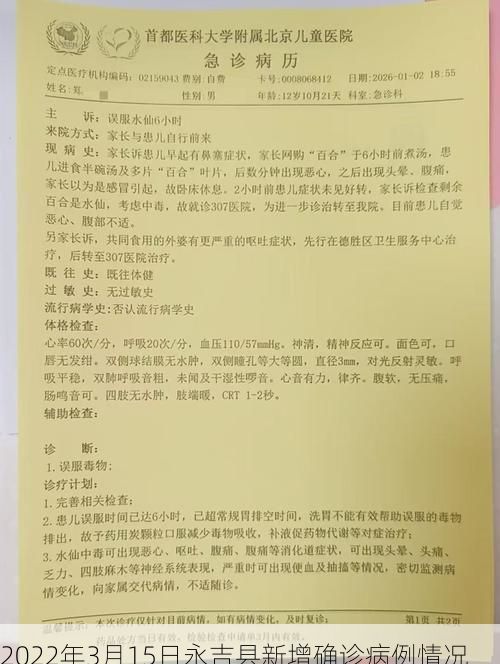 首都医科大学附属北京儿童医院
急诊病历
定点医疗机构编码：02159043 费别:自费 卡号:0008068412 日期:2026-01-02 18:55
姓名:郑 性别:男 年龄:12岁10月21天 科室:急诊科
主 诉：误服水仙6小时
来院方式：家长与患儿自行前来
现 病 史：家长诉患儿早起有鼻塞症状，家长网购“百合”于6小时前煮汤，患
儿进食半碗汤及多片“百合”叶片，后数分钟出现恶心，之后出现头晕、腹痛，
家长以为是感冒引起，故卧床休息。2小时前患儿症状未见好转，家长诉检查剩余
百合是水仙，考虑中毒，故就诊307医院，为进一步诊治转至我院。目前患儿自觉
恶心、腹部不适。
另家长诉，共同食用的外婆有更严重的呕吐症状，先行在德胜区卫生服务中心治
疗，后转至307医院治疗。
既 往 史：既往体健
过 敏 史：无过敏史
流行病学史:否认流行病学史
体格检查：
心率60次/分，呼吸20次/分，血压110/57mmHg。神清，精神反应可。面色可。口
唇无发绀。双侧球结膜无水肿，双侧瞳孔等大等圆，直径3mm，对光反射灵敏。呼
吸平稳，双肺呼吸音粗，未闻及干湿性啰音。心音有力，律齐。腹软，无压痛，
肠鸣音可。四肢无水肿，肢端暖，CRT 1-2秒。
辅助检查：
诊 断：
1.误服毒物;
诊疗计划：
1.完善相关检查；
2.患儿误服时间已达6小时，已超常规胃排空时间，洗胃不能有效帮助误服的毒物
排出，故予药用炭颗粒口服减少毒物吸收，补液促药物代谢等对症治疗；
3.水仙中毒可出现恶心、呕吐、腹痛、腹痛等消化道症状，可出现头晕、头痛、
乏力、四肢麻木等神经系统表现，严重时可出现便血及抽搐等情况，密切监测病
情变化，向家属交代病情，不适随诊。
温馨提示：本次诊疗仅针对目前病情，如有病情变化，及时复诊； 第1页 共2页
2022年3月15日永吉县新增确诊病例情况